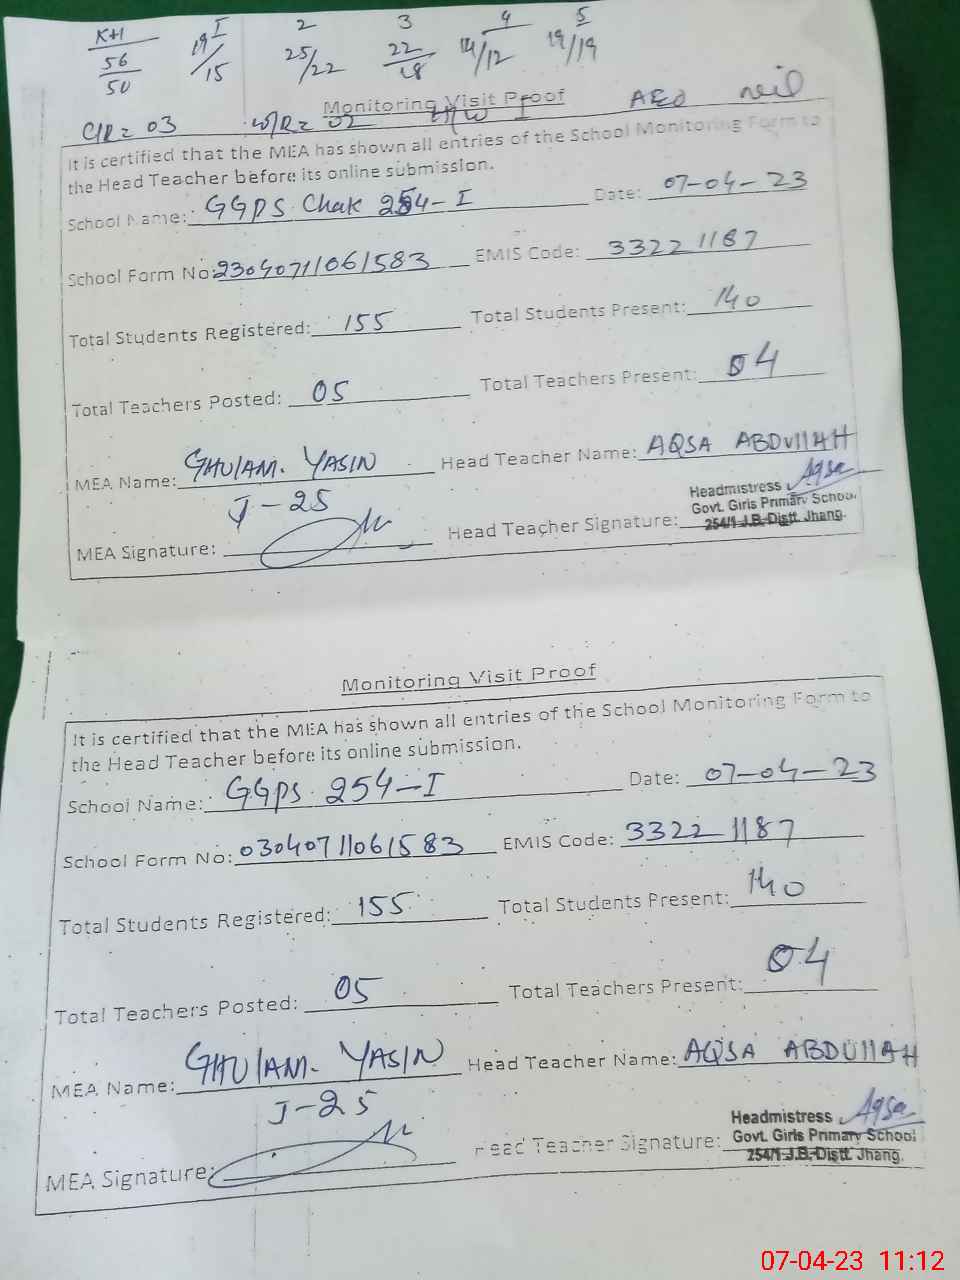 K+1 I 2 3 4 5
56/50 19/15 25/22 22/18 14/12 19/19
Monitoring Visit Proof AEO neil
C/R = 03 W/R = 02 I
It is certified that the MEA has shown all entries of the School Monitoring Form to
the Head Teacher before its online submission.
School Name: GGPS Chak 254-I Date: 07-04-23
School Form No: 23040711061583 EMIS Code: 33221187
Total Students Registered: 155 Total Students Present: 140
Total Teachers Posted: 05 Total Teachers Present: 04
MEA Name: GHULAM. YASIN Head Teacher Name: AQSA ABDUllAH
J-25
Headmistress Aqsa
Govt. Girls Primary School
MEA Signature: Head Teacher Signature: 254/1 J.B. Distt. Jhang.
Monitoring Visit Proof
It is certified that the MEA has shown all entries of the School Monitoring Form to
the Head Teacher before its online submission.
School Name: GGPS 254-I Date: 07-04-23
School Form No: 03040711061583 EMIS Code: 33221187
Total Students Registered: 155 Total Students Present: 140
Total Teachers Posted: 05 Total Teachers Present: 04
MEA Name: GHULAM. YASIN Head Teacher Name: AQSA ABDUllAH
J-25
Headmistress Aqsa
Govt. Girls Primary School
MEA Signature: Head Teacher Signature: 254/1 J.B. Distt. Jhang.
07-04-23 11:12